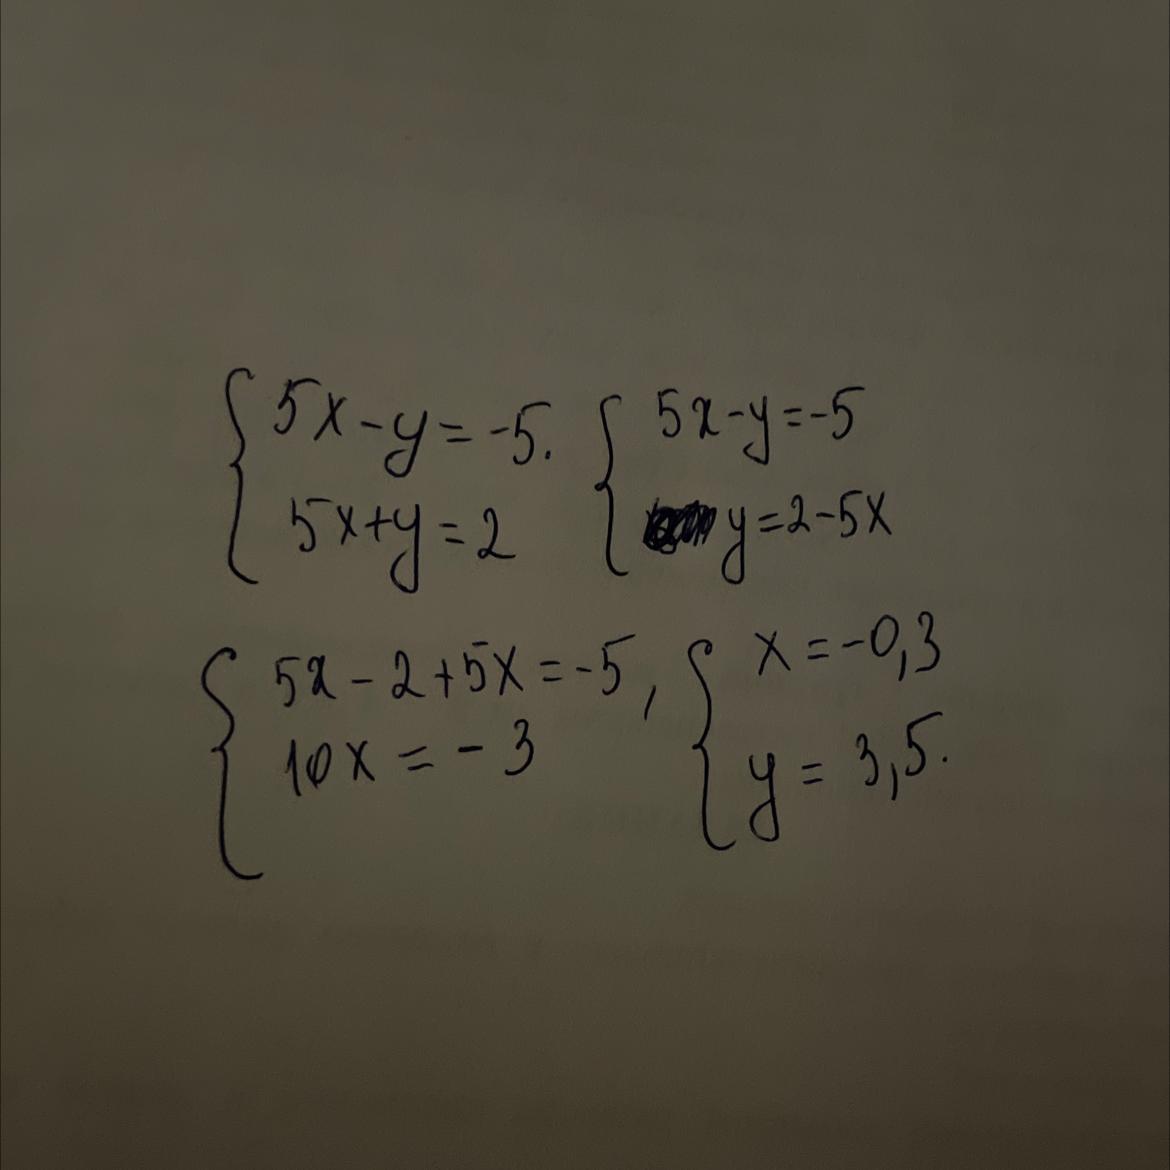 5x-y=-5.
5x+y=2
5x-y=-5
y=2-5x
5x-2+5x=-5,
10x=-3
x=-0,3
y=3,5.